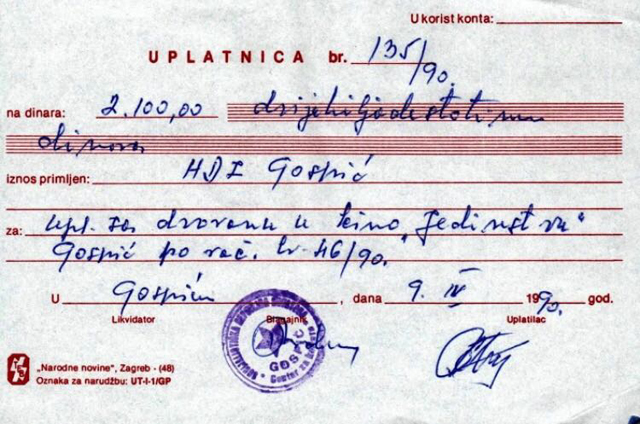 U korist konta:
UPLATNICA br. 135/90.
na dinara: 2.100,00 dvijehiljadestotinu
dinara
iznos primljen: HDZ Gospić
za: upl. za dvoranu u kino „Jedinstvu"
Gospić po rač. br. 46/90.
U Gospiću, dana 9. IV 1990. god.
Likvidator Blagajnik Uplatilac
GOSPIĆ
„Narodne novine", Zagreb - (48)
Oznaka za narudžbu: UT-I-1/GP